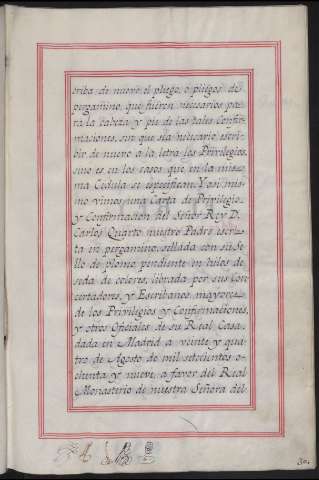 criba de nuevo el pliego, o pliegos de
pergamino, que fueren necesarios pa-
ra la cabeza y pie de las tales Confir-
maciones, sin que sea necesario escri-
bir de nuevo a la letra los Privilegios,
sino es en los casos que en la mis-
ma Cedula se especifican. Y asi mis-
mo vimos una Carta de Privilegio
y Confirmacion del Señor Rey D.
Carlos Quarto nuestro Padre escri-
ta en pergamino, sellada con su Se-
llo de plomo pendiente en hilos de
seda de colores, librada por sus Con-
certadores, y Escribanos mayores
de los Privilegios y Confirmaciones,
y otros Oficiales de su Real Casa,
dada en Madrid a veinte y qua-
tro de Agosto de mil setecientos o-
chenta y nueve a favor del Real
Monasterio de nuestra Señora del